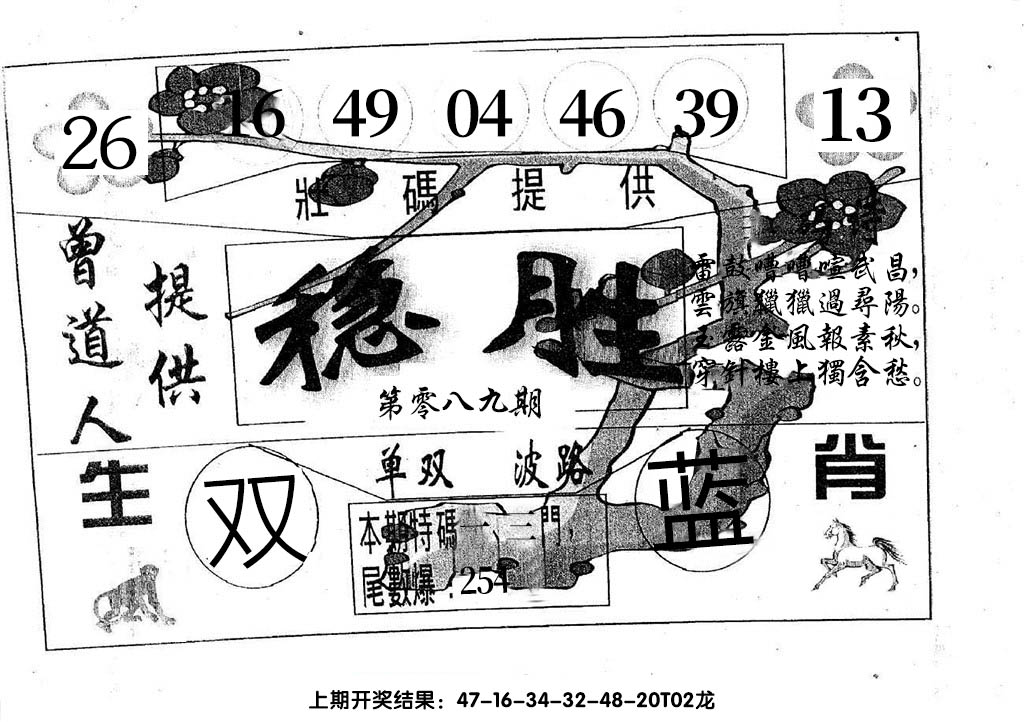 26 16 49 04 46 39 13
壯碼提供
特
曾道人
提供
稳胜
第零八九期
雷鼓嘈嘈喧武昌，
雲旗獵獵過尋陽。
玉露金風報素秋，
穿针樓上獨含愁。
单双 波路
生肖
双
蓝
本期特碼一、三門，
尾數爆：254
上期开奖结果：47-16-34-32-48-20T02龙